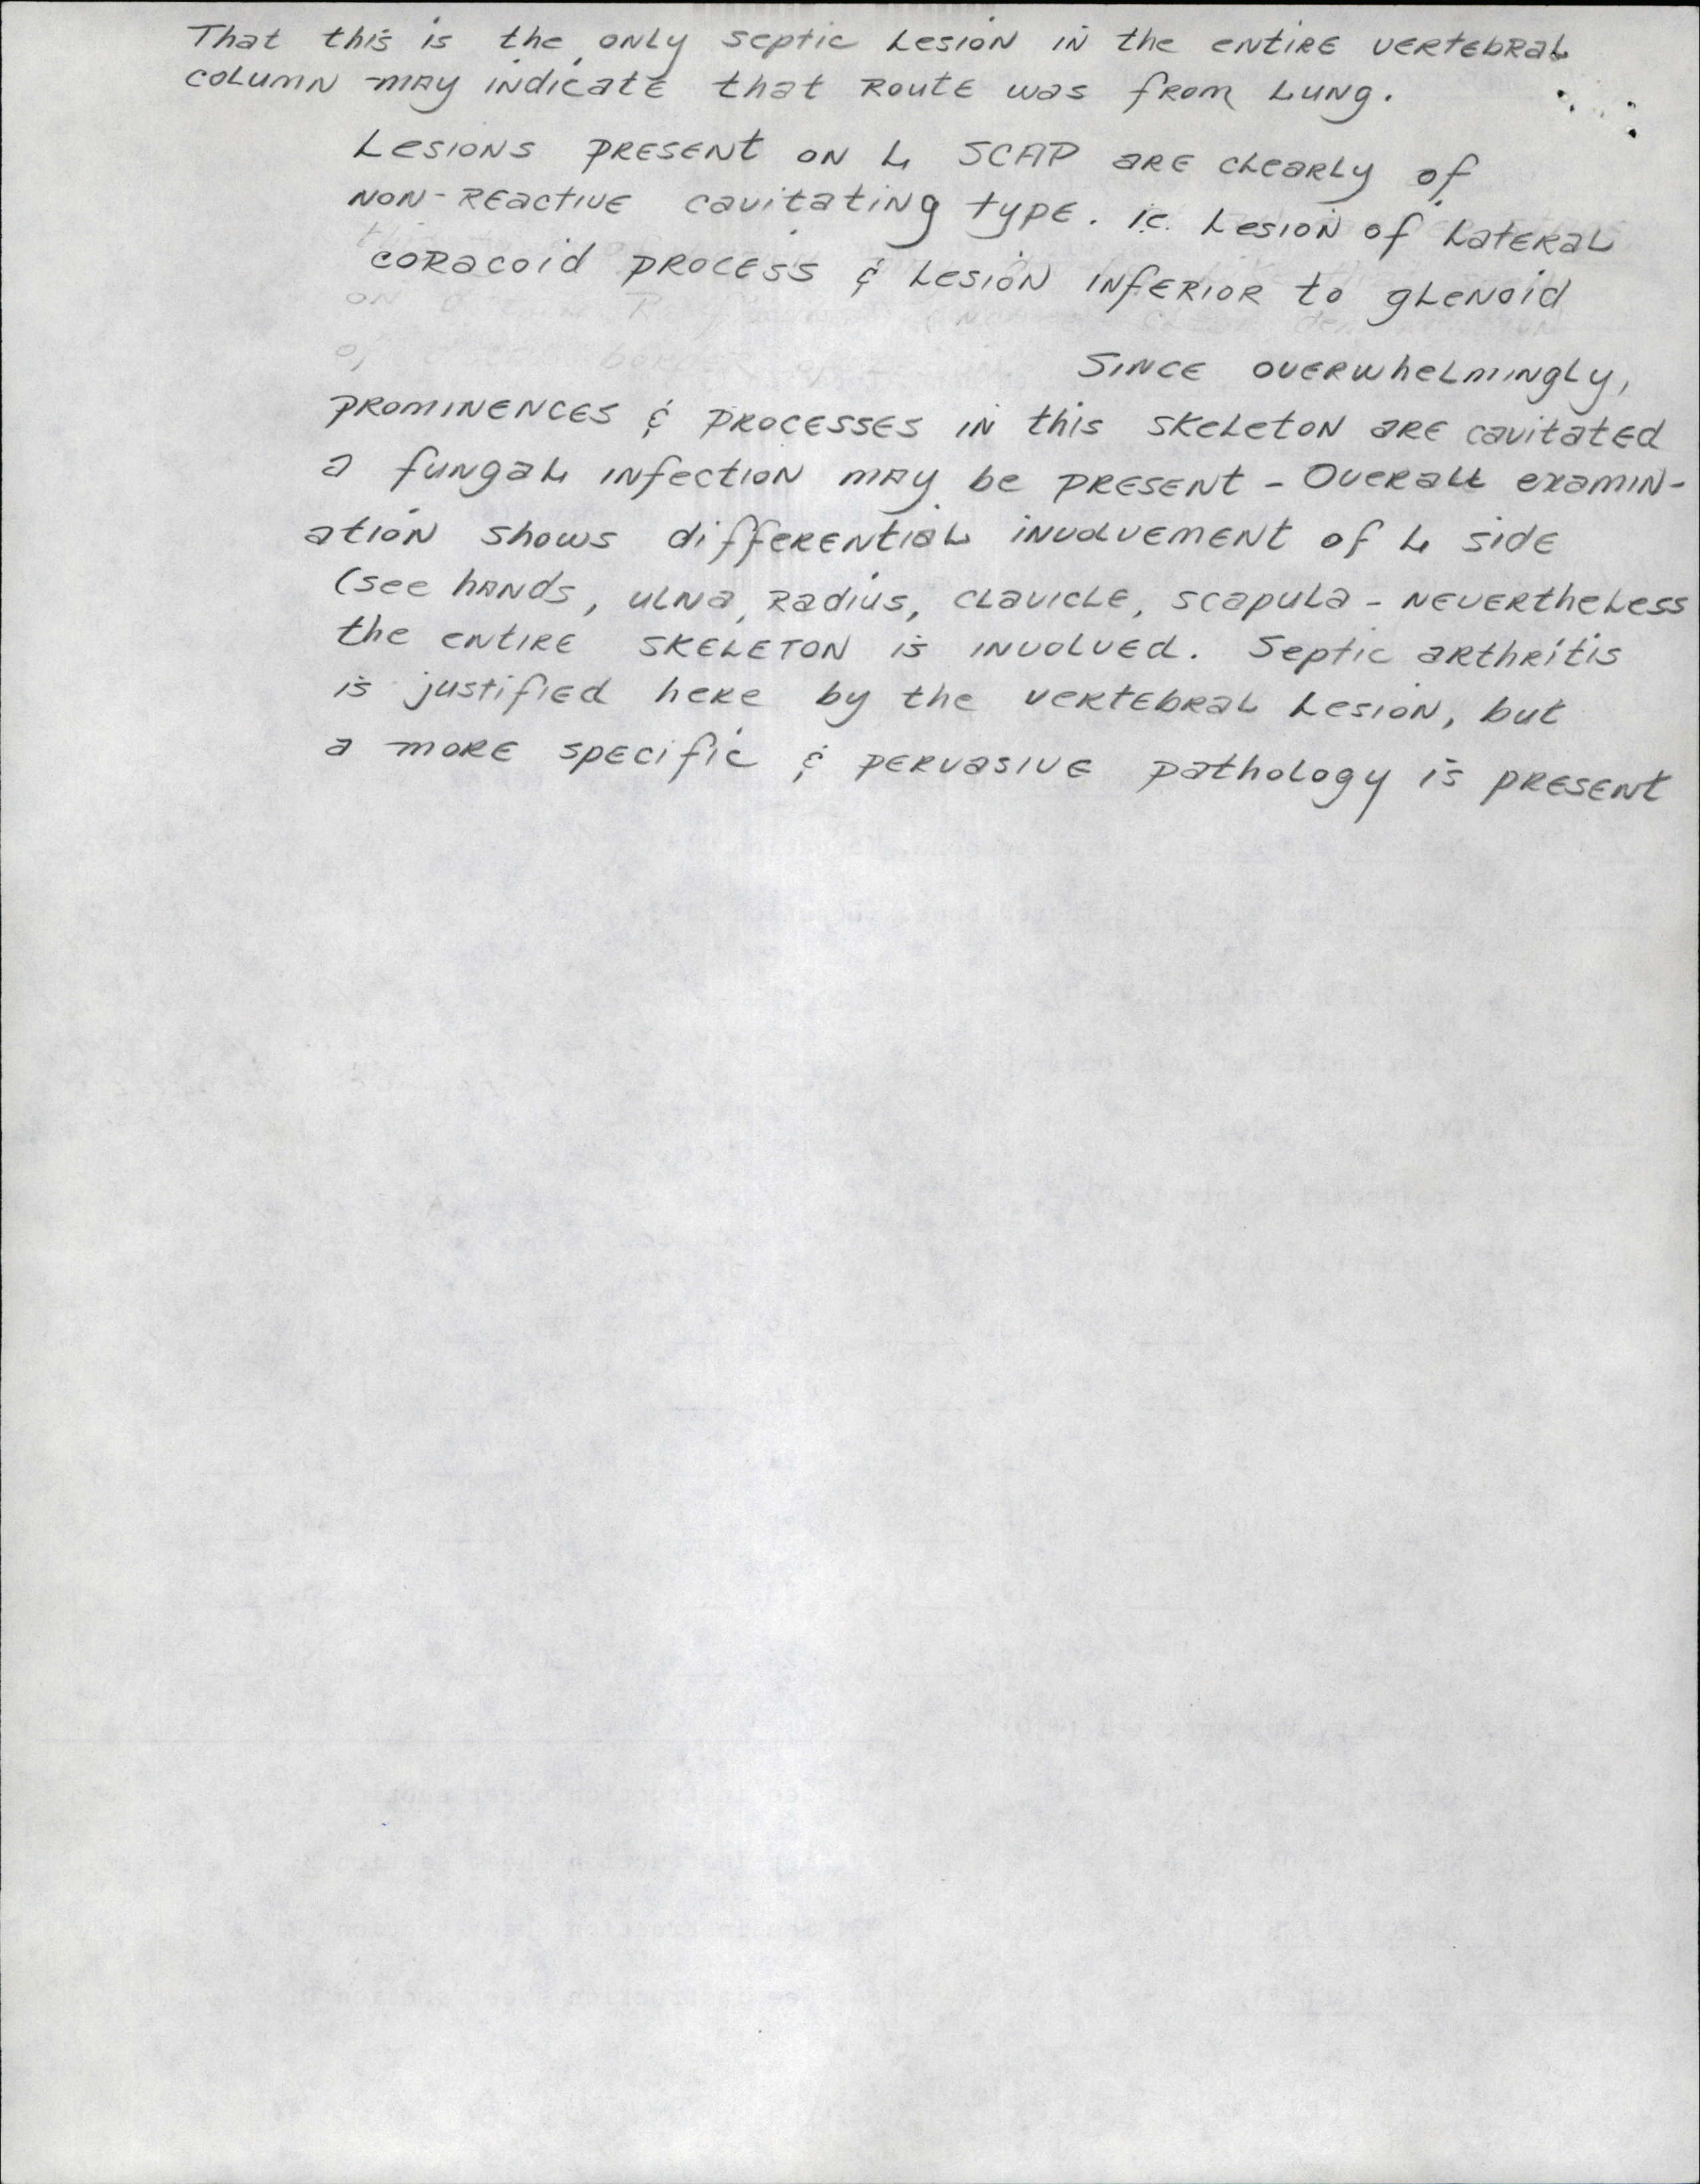 That this is the only septic lesion in the entire vertebral
column may indicate that route was from lung.
Lesions present on L SCAP are clearly of
non-reactive cavitating type. i.e. lesion of lateral
coracoid process & lesion inferior to glenoid
Since overwhelmingly,
prominences & processes in this skeleton are cavitated
a fungal infection may be present - Overall examin-
ation shows differential involvement of L side
(see hands, ulna, radius, clavicle, scapula - nevertheless
the entire skeleton is involved. Septic arthritis
is justified here by the vertebral lesion, but
a more specific & pervasive pathology is present